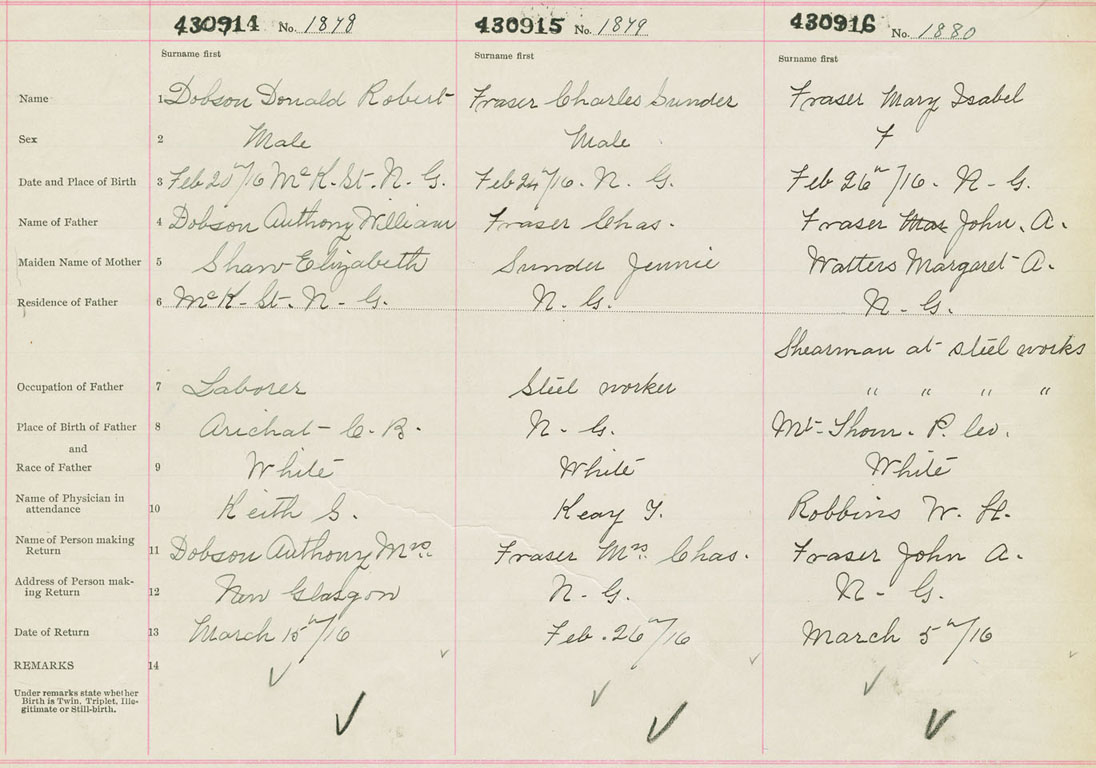 430914 No. 1878 430915 No. 1879 430916 No. 1880
Surname first Surname first Surname first
Name 1 Dobson Donald Robert Fraser Charles Sunder Fraser Mary Isabel
Sex 2 Male Male F
Date and Place of Birth 3 Feb 20th/16 McK. St. N. G. Feb 24th/16. N. G. Feb 26th/16. N. G.
Name of Father 4 Dobson Anthony William Fraser Chas. Fraser John. A.
Maiden Name of Mother 5 Shaw Elizabeth Sunder Jennie Watters Margaret A.
Residence of Father 6 McK. St. N. G. N. G. N. G.
Shearman at steel works
Occupation of Father 7 Laborer Steel worker " " " "
Place of Birth of Father 8 Arichat C. B. N. G. Mt. Thom. P. Co.
and
Race of Father 9 White White White
Name of Physician in
attendance 10 Keith S. Keay T. Robbins W. H.
Name of Person making
Return 11 Dobson Anthony Mrs. Fraser Mrs. Chas. Fraser John A.
Address of Person mak-
ing Return 12 New Glasgow N. G. N. G.
Date of Return 13 March 15th/16 Feb. 26th/16 March 5th/16
REMARKS 14
Under remarks state whether
Birth is Twin, Triplet, Ille-
gitimate or Still-birth.